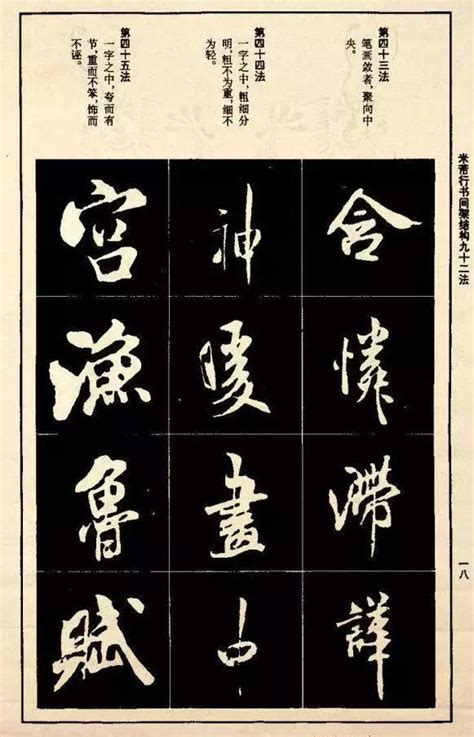 米芾行书间架结构九十二法
一八
第四十三法
笔画敛者，聚向中
央。
含
憐
滯
第四十四法
一字之中，粗细分
明，粗不为重，细不
为轻。
神
暖
畫
中
第四十五法
一字之中，夸而有
节，重而不笨，饰而
不诬。
宫
漁
魯
賦